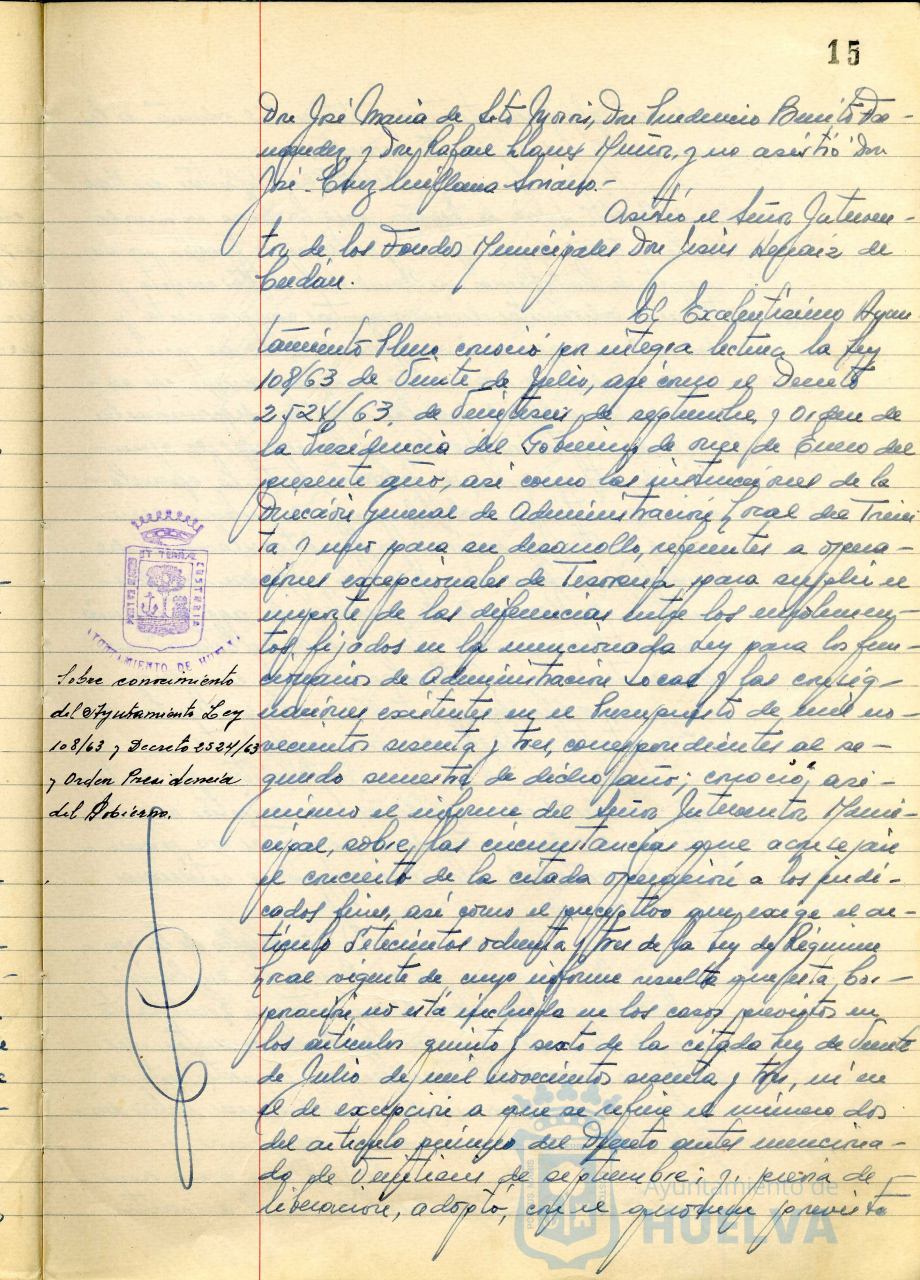 15
Don José María de Soto Morris, Don Prudencio Benito Fer-
nandez, y Don Rafael Llanes Muñoz, y no asistió Don
José Cruz Soriano.-
Asistió el Señor Interven-
tor de los Fondos Municipales Don Jesús de
Cerdán.
El Excelentisimo Ayun-
tamiento Pleno conoció por integra lectura la Ley
108/63 de Veinte de Julio, así como el Decreto
2524/63, de Veintiseis de septiembre, y Orden de
la Presidencia del Gobierno de once de Enero del
presente año, así como las instrucciones de la
Dirección General de Administración Local del Trein-
ta y uno para su desarrollo, referentes a opera-
ciones excepcionales de Tesoreria para suplir el
importe de las diferencias entre los emolumen-
tos fijados en la mencionada Ley para los fun-
cionarios de Administración Local y las consig-
naciones existentes en el Presupuesto de mil no-
vecientos sesenta y tres, correspondientes al se-
gundo semestre de dicho año; conoció, así-
mismo el informe del Señor Interventor Muni-
cipal, sobre las circunstancias que aconsejan
el concierto de la citada operación a los indi-
cados fines, así como el preceptivo que exige el ar-
ticulo Setecientos ochenta y tres de la Ley de Régimen
Local vigente de cuyo informe resulta que esta Cor-
poración, no está incluida en los casos previstos en
los articulos quinto y sexto de la citada Ley de Veinte
de Julio de mil novecientos sesenta y tres, ni en
el de excepción a que se refiere el número dos
del articulo primero del Decreto antes menciona-
do de Veintiseis de septiembre; y, previa de-
liberación, adoptó, con el quorum previsto
AYUNTAMIENTO DE HUELVA
Sobre conocimiento
del Ayuntamiento Ley
108/63 y Decreto 2524/63
y Orden Presidencia
del Gobierno.
Ayuntamiento de
HUELVA